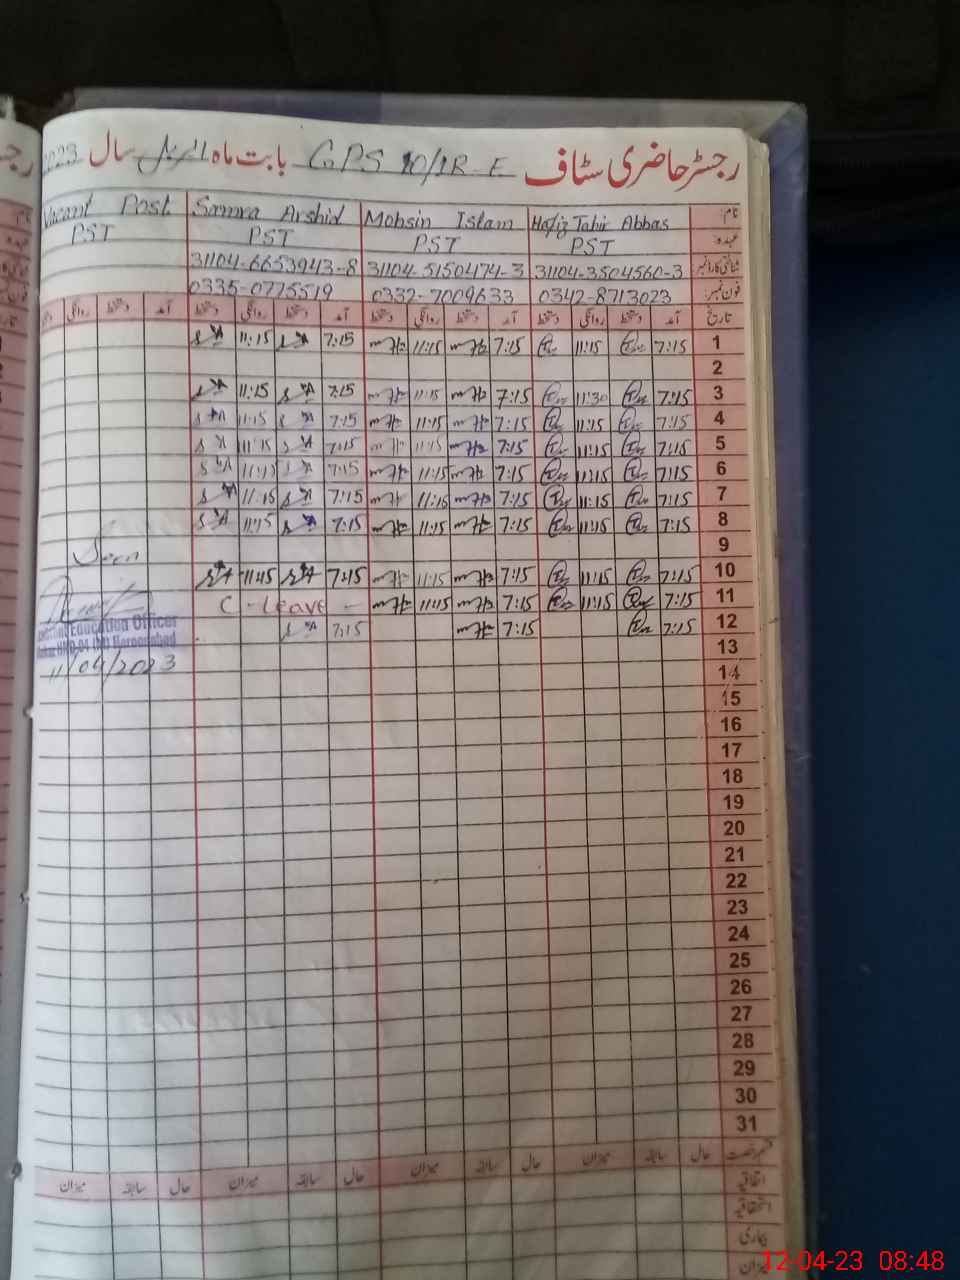 رجسٹر حاضری سٹاف GPS 10/1R-E بابت ماہ اپریل سال 2023
نام: Hafiz Tahir Abbas Mohsin Islam Samra Arshid Vacant Post
عہدہ: PST PST PST PST
شناختی کارڈ نمبر: 31104-3504560-3 31104-5150474-3 31104-6653943-8
فون نمبر: 0342-8713023 0332-7009633 0335-0775519
تاریخ آمد دستخط روانگی دستخط آمد دستخط روانگی دستخط آمد دستخط روانگی دستخط آمد دستخط روانگی
1 7:15 11:15 7:15 11:15 7:15 11:15
2
3 7:15 11:30 7:15 11:15 7:15 11:15
4 7:15 11:15 7:15 11:15 7:15 11:15
5 7:15 11:15 7:15 11:15 7:15 11:15
6 7:15 11:15 7:15 11:15 7:15 11:15
7 7:15 11:15 7:15 11:15 7:15 11:15
8 7:15 11:15 7:15 11:15 7:15 11:15
9 Seen
10 7:15 11:15 7:15 11:15 7:15 11:45
11 7:15 11:15 7:15 11:45 C - Leave -
12 7:15 7:15 7:15
Education Officer
Haroonabad
11/04/2023
13
14
15
16
17
18
19
20
21
22
23
24
25
26
27
28
29
30
31
قسم رخصت حال سابقہ میزان حال سابقہ میزان حال سابقہ میزان
اتفاقیہ
استحقاقیہ
بیماری
میزان
12-04-23 08:48